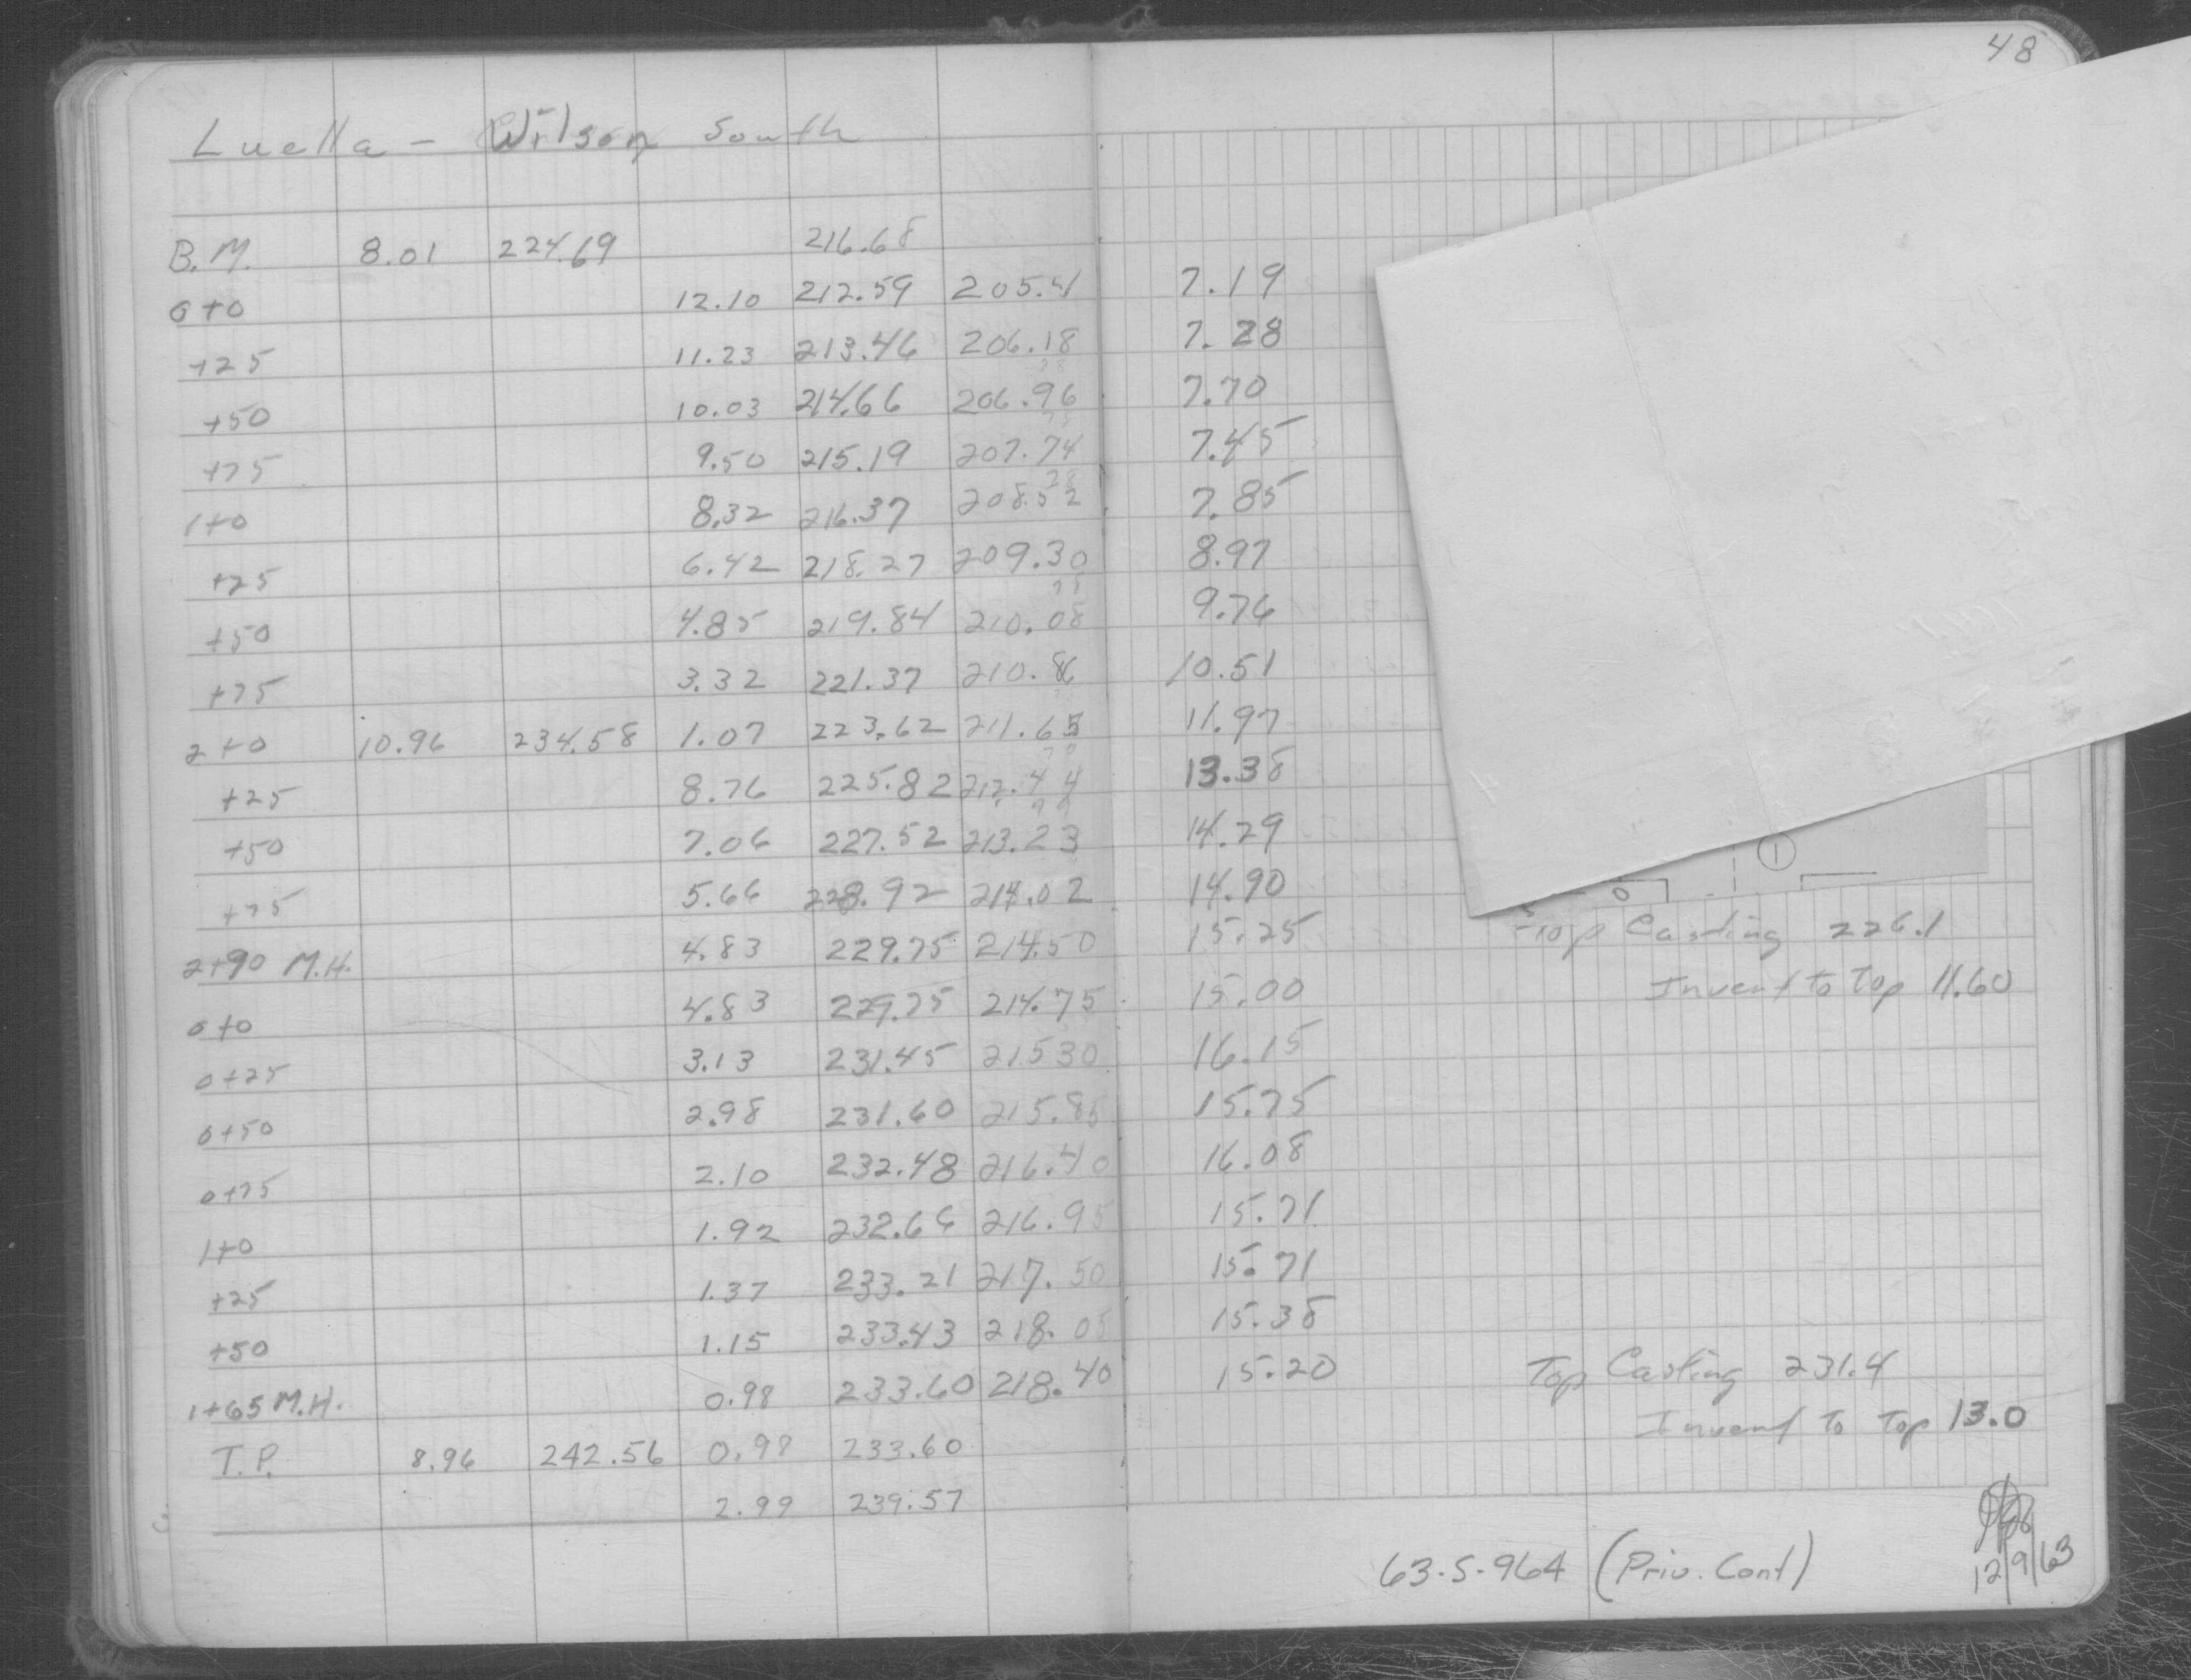 48
Luella - Wilson South
B.M. 8.01 224.69 216.68
0+0 12.10 212.59 205.41 7.19
+25 11.23 213.46 206.18 7.28
+50 10.03 214.66 206.96 7.70
+75 9.50 215.19 207.74 7.45
1+0 8.32 216.37 208.52 7.85
+25 6.42 218.27 209.30 8.97
+50 4.85 219.84 210.08 9.76
+75 3.32 221.37 210.86 10.51
2+0 10.96 234.58 1.07 223.62 211.65 11.97
+25 8.76 225.82 212.44 13.38
+50 7.06 227.52 213.23 14.29
+75 5.66 228.92 214.02 14.90
2+90 M.H. 4.83 229.75 214.50 15.25 Top Casting 226.1
0+0 4.83 229.75 214.75 15.00 Invert to Top 11.60
0+25 3.13 231.45 215.30 16.15
0+50 2.98 231.60 215.85 15.75
0+75 2.10 232.48 216.40 16.08
1+0 1.92 232.66 216.95 15.71
+25 1.37 233.21 217.50 15.71
+50 1.15 233.43 218.05 15.38
1+65 M.H. 0.98 233.60 218.40 15.20 Top Casting 231.4
T.P. 8.96 242.56 0.98 233.60 Invert to Top 13.0
2.99 239.57
63-S-964 (Priv. Cont)
12/9/63
1